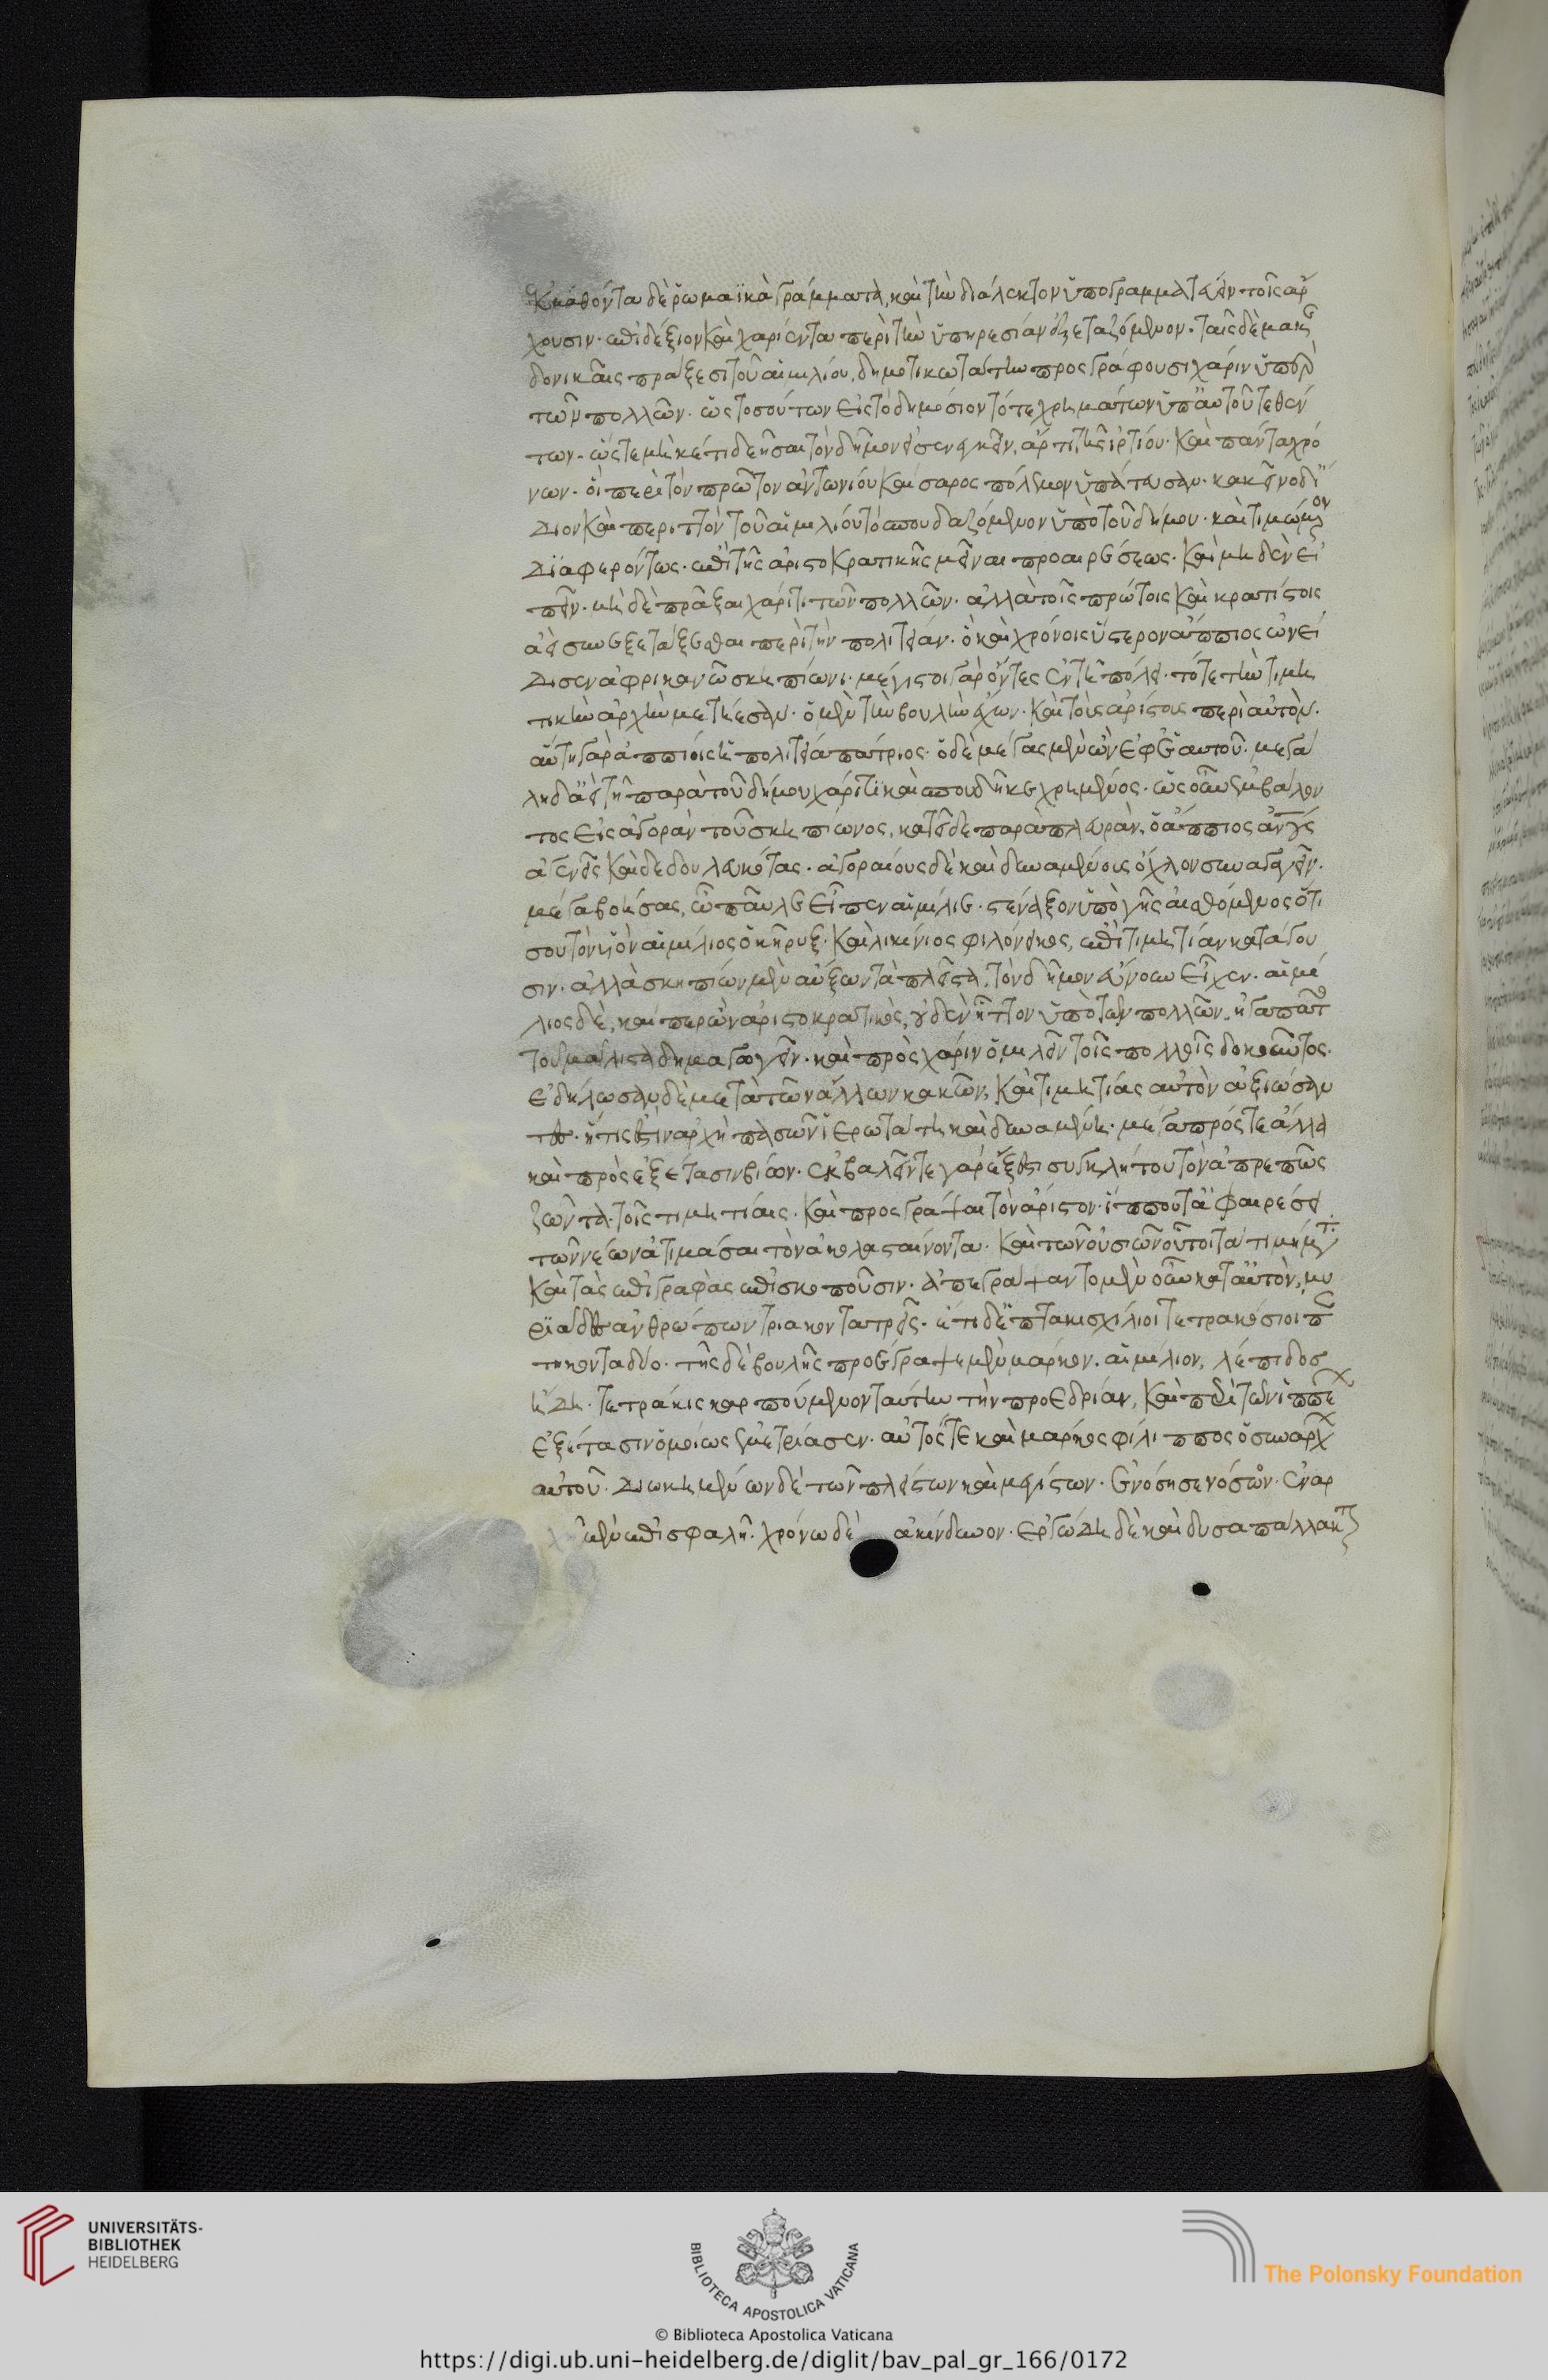 ἐκμαθόντα δὲ ῥωμαϊκὰ γράμματα, καὶ τὴν διάλεκτον ὑπογραμματεύειν τοῖς ἄρ
χουσιν. ἐπιδέξιον καὶ χαρίεντα περὶ τὴν ὑπηρεσίαν ἐξεταζόμενον. ταῖς δὲ μακε
δονικαῖς πράξεσι τοῦ αἰμιλίου, δημοτικωτάτην προςγράφουσι χάριν ὑπὲρ
τῶν πολλῶν. ὡς τοσούτων εἰς τὸ δημόσιον τότε χρημάτων ὑπ' αὐτοῦ τεθέν
των. ὥςτε μηκέτι δεῆσαι τὸν δῆμον εἰσενεγκεῖν, ἄρτι τῆς ἱρτίου. καὶ πάνσα χρό
νων. οἱ περὶ τὸν πρῶτον ἀντωνίου καίσαρος πόλεμον ὑπάτευσαν. κακεῖνο δὲ ἴ
διον καὶ περιττὸν τοῦ αἰμιλίου τὸ σπουδαζόμενον ὑπὸ τοῦ δήμου. καὶ τιμώμενον
διαφερόντως. ἐπὶ τῆς ἀριστοκρατικῆς μεῖναι προαιρέσεως. καὶ μηδὲν εἰ
πεῖν. μηδὲ πρᾶξαι χάριτι τῶν πολλῶν. ἀλλὰ τοῖς πρώτοις καὶ κρατίστοις
ἀεὶ συνεξετάζεσθαι περὶ τὴν πολιτείαν. ὃ καὶ χρόνοις ὕστερον ἄππιος ὠνεί
δισεν ἀφρικανῶ σκηπίωνι. μέγιστοι γὰρ ὄντες ἐν τῆ πόλει. τότε τὴν τιμη
τικὴν ἀρχὴν μετήεσαν. ὁ μὲν τὴν βουλὴν ἔχων. καὶ τοὺς ἀρίστους περὶ αὐτὸν.
αὕτη γὰρ ἀππίοις ἡ πολιτεία πάτριος. ὁ δὲ μέγας μὲν ὢν ἐφ' ἑαυτοῦ. μεγά
λη δ' ἀεὶ τῆ παρὰ τοῦ δήμου χάριτι καὶ σπουδῆ κεχρημένος. ὡς οὖν ἐμβαλόν
τος εἰς ἀγορὰν τοῦ σκηπίωνος, κατεῖδε παρὰ πλευρὰν, ὁ ἄππιος ἀνθρώπους
ἀγενεῖς καὶ δεδουλευκότας. ἀγοραίους δὲ καὶ δυναμένους ὄχλον συναγαγεῖν.
μέγα βοήσας, ὦ παῦλε εἶπεν αἰμίλιε. στέναξον ὑπὸ γῆς αἰσθόμενος ὅτι
σου τὸν υἱὸν αἰμίλιος ὁ κῆρυξ. καὶ λικίνιος φιλόνεικος, ἐπὶ τιμητίαν κατάγου
σιν. ἀλλὰ σκηπίων μὲν αὔξων τὰ πλεῖστα, τὸν δῆμον εὔνουν εἶχεν. αἰμί
λιος δὲ, καίπερ ὢν ἀριστοκρατικὸς, οὐδὲν ἧττον ὑπὸ τῶν πολλῶν. ἠγαπᾶτο
τοῦ μάλιστα δημαγωγεῖν. καὶ πρὸς χάριν ὁμιλεῖν τοῖς πολλοῖς δοκοῦντος.
ἐδήλωσαν δὲ μετὰ τῶν ἄλλων κακῶν, καὶ τιμητίας αὐτὸν ἀξιώσαν
τες. ἥτις ἐστὶν ἀρχὴ πασῶν ἱερωτάτη καὶ δυναμένη. μέγα πρός τε ἄλλα
καὶ πρὸς ἐξέτασιν βίων. ἐκβαλεῖν τε γὰρ ἔξεστι συγκλήτου τὸν ἀπρεπῶς
ζῶντα. τοῖς τιμητίαις. καὶ προςγράψαι τὸν ἄριστον. ἵππου τ' ἀφαιρέσει
τῶν νέων ἀτιμάσαι τὸν ἀκολασταίνοντα. καὶ τῶν οὐσιῶν οὗτοι τὰ τιμήματα
καὶ τὰς ἐπιγραφὰς ἐπισκοποῦσιν. ἀπεγράψαντο μὲν οὖν κατ' αὐτὸν, μυ
ριάδες ἀνθρώπων τριακοντατρεῖς. ἔτι δ' ἑπτακισχίλιοι τετρακόσιοι πεν
τηκονταδύο. τῆς δὲ βουλῆς προέγραψε μὲν μάρκον. αἰμίλιον, λέπιδος
ἤδη. τετράκις καρπούμενον ταύτην τὴν προεδρίαν, καὶ περὶ τῶν ἱππέων
ἐξέτασιν ὁμοίως ἐμετρίασεν. αὐτός τε καὶ μάρκος φίλιππος ὁ συνάρχων
αὐτοῦ. διωκημένων δὲ τῶν πλείστων καὶ μεγίστων. ἐνόσησε νόσον. ἐν ἀρ
χῆ μὲν ἐπισφαλῆ. χρόνω δὲ ἀκίνδυνον. ἐργώδη δὲ καὶ δυσαπάλλακτον
UNIVERSITÄTS-
BIBLIOTHEK
HEIDELBERG
BIBLIOTECA APOSTOLICA VATICANA
The Polonsky Foundation
© Biblioteca Apostolica Vaticana
https://digi.ub.uni-heidelberg.de/diglit/bav_pal_gr_166/0172